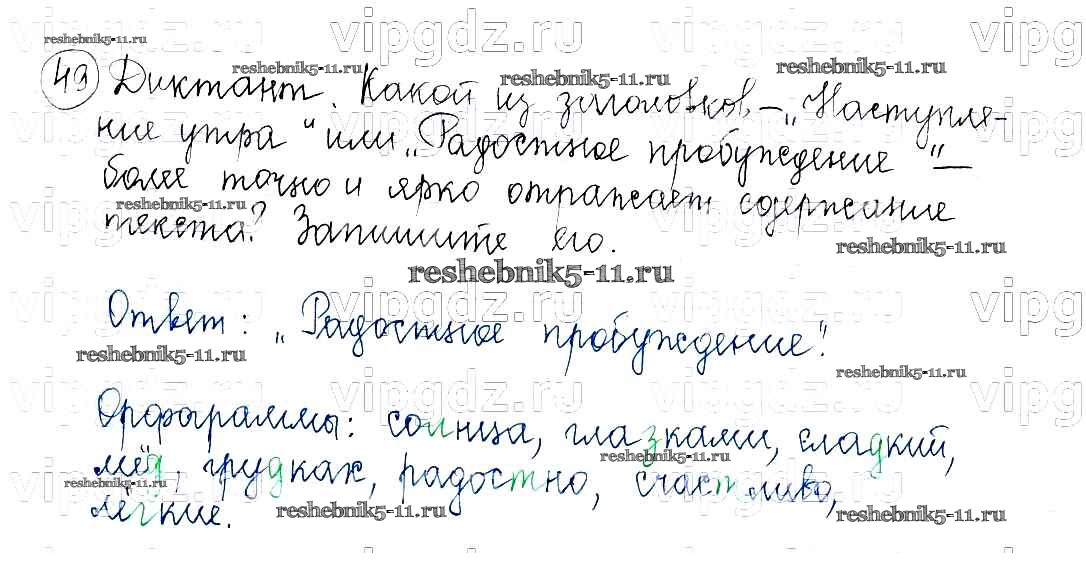 49 Диктант. Какой из заголовков – „Наступле-
ние утра" или „Радостное пробуждение" –
более точно и ярко отражает содержание
текста? Запишите его.
Ответ: „Радостное пробуждение".
Орфограммы: солнца, глазками, сладкий,
мёд, грудках, радостно, счастливо,
лёгкие.
vipgdz.ru
reshebnik5-11.ru